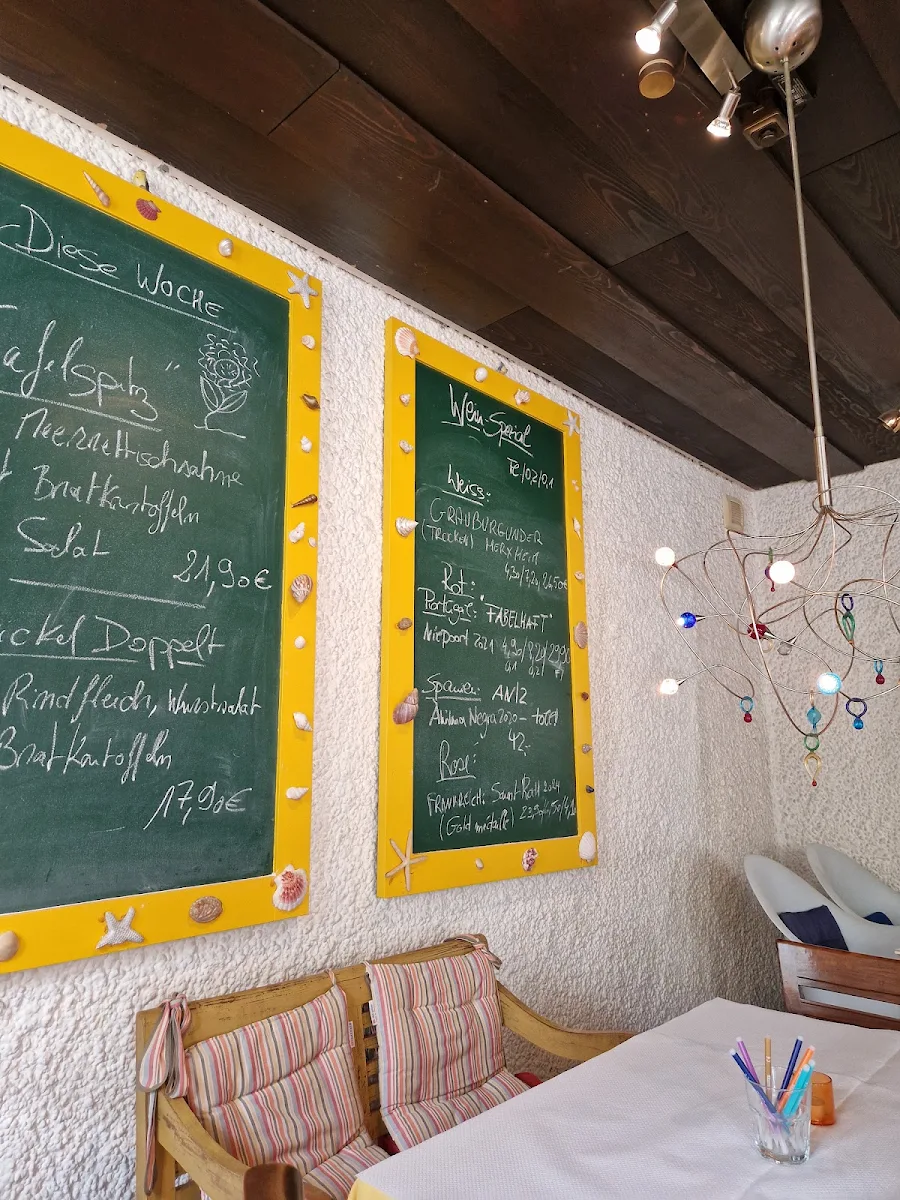 Diese Woche
Tafelspitz "
Meerrettichsahne
Bratkartoffeln
Salat
21,90€
Doppelt
Rindfleisch, Wurstsalat
Bratkartoffeln
17,90€
Wein-Spezial
Weiss:
GRAUBURGUNDER
(TROCKEN) HERXHEIM
4,30/7,20, 26,50€
Rot:
Portugal: "FABELHAFT"
Niepoort 2021 4,90/8,20/29,90
0,1 0,2l Fl
Spanien: AN/2
Negra 2020 -
42,-
Rosé:
FRANKREICH: Saint Roth 2024
(Gold médaille)